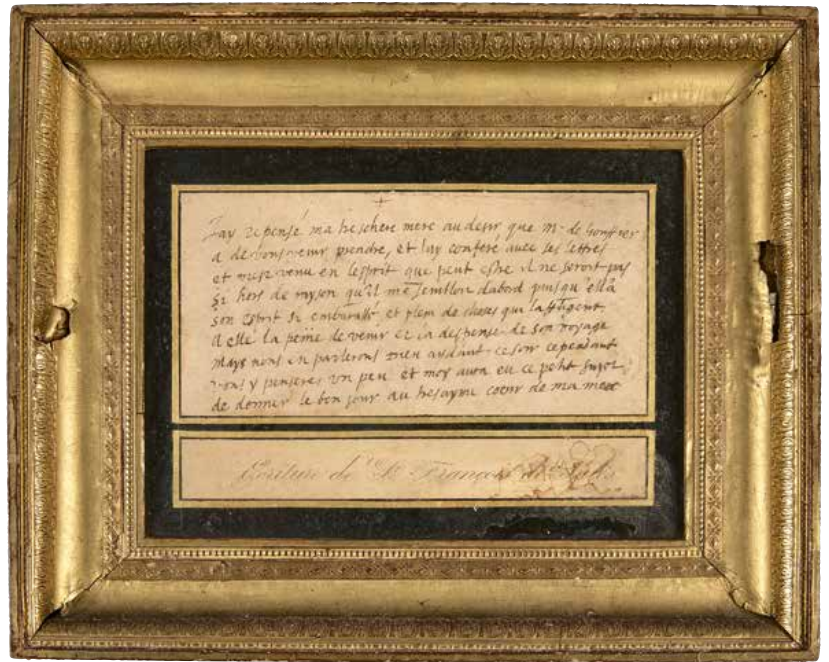 +
Jay repensé ma treschere mere au desir que Mr de Gouffier
a de vous venir prendre, et lay conferé avec ses lettres
et mest venu en lesprit que peut estre il ne seroit pas
si hors de rayson qu'il me sembloit dabord puis qu'ell'a
son esprit si embarassé et plein de choses qui laffligent
a elle la peine de venir et la despense de son voyage
mays nous en parlerons Dieu aydant ce soir cependant
vous y penseres un peu et moy auray eu ce petit sujet
de donner le bon jour au tresaymé coeur de ma mere
Ecriture de St François de Sales